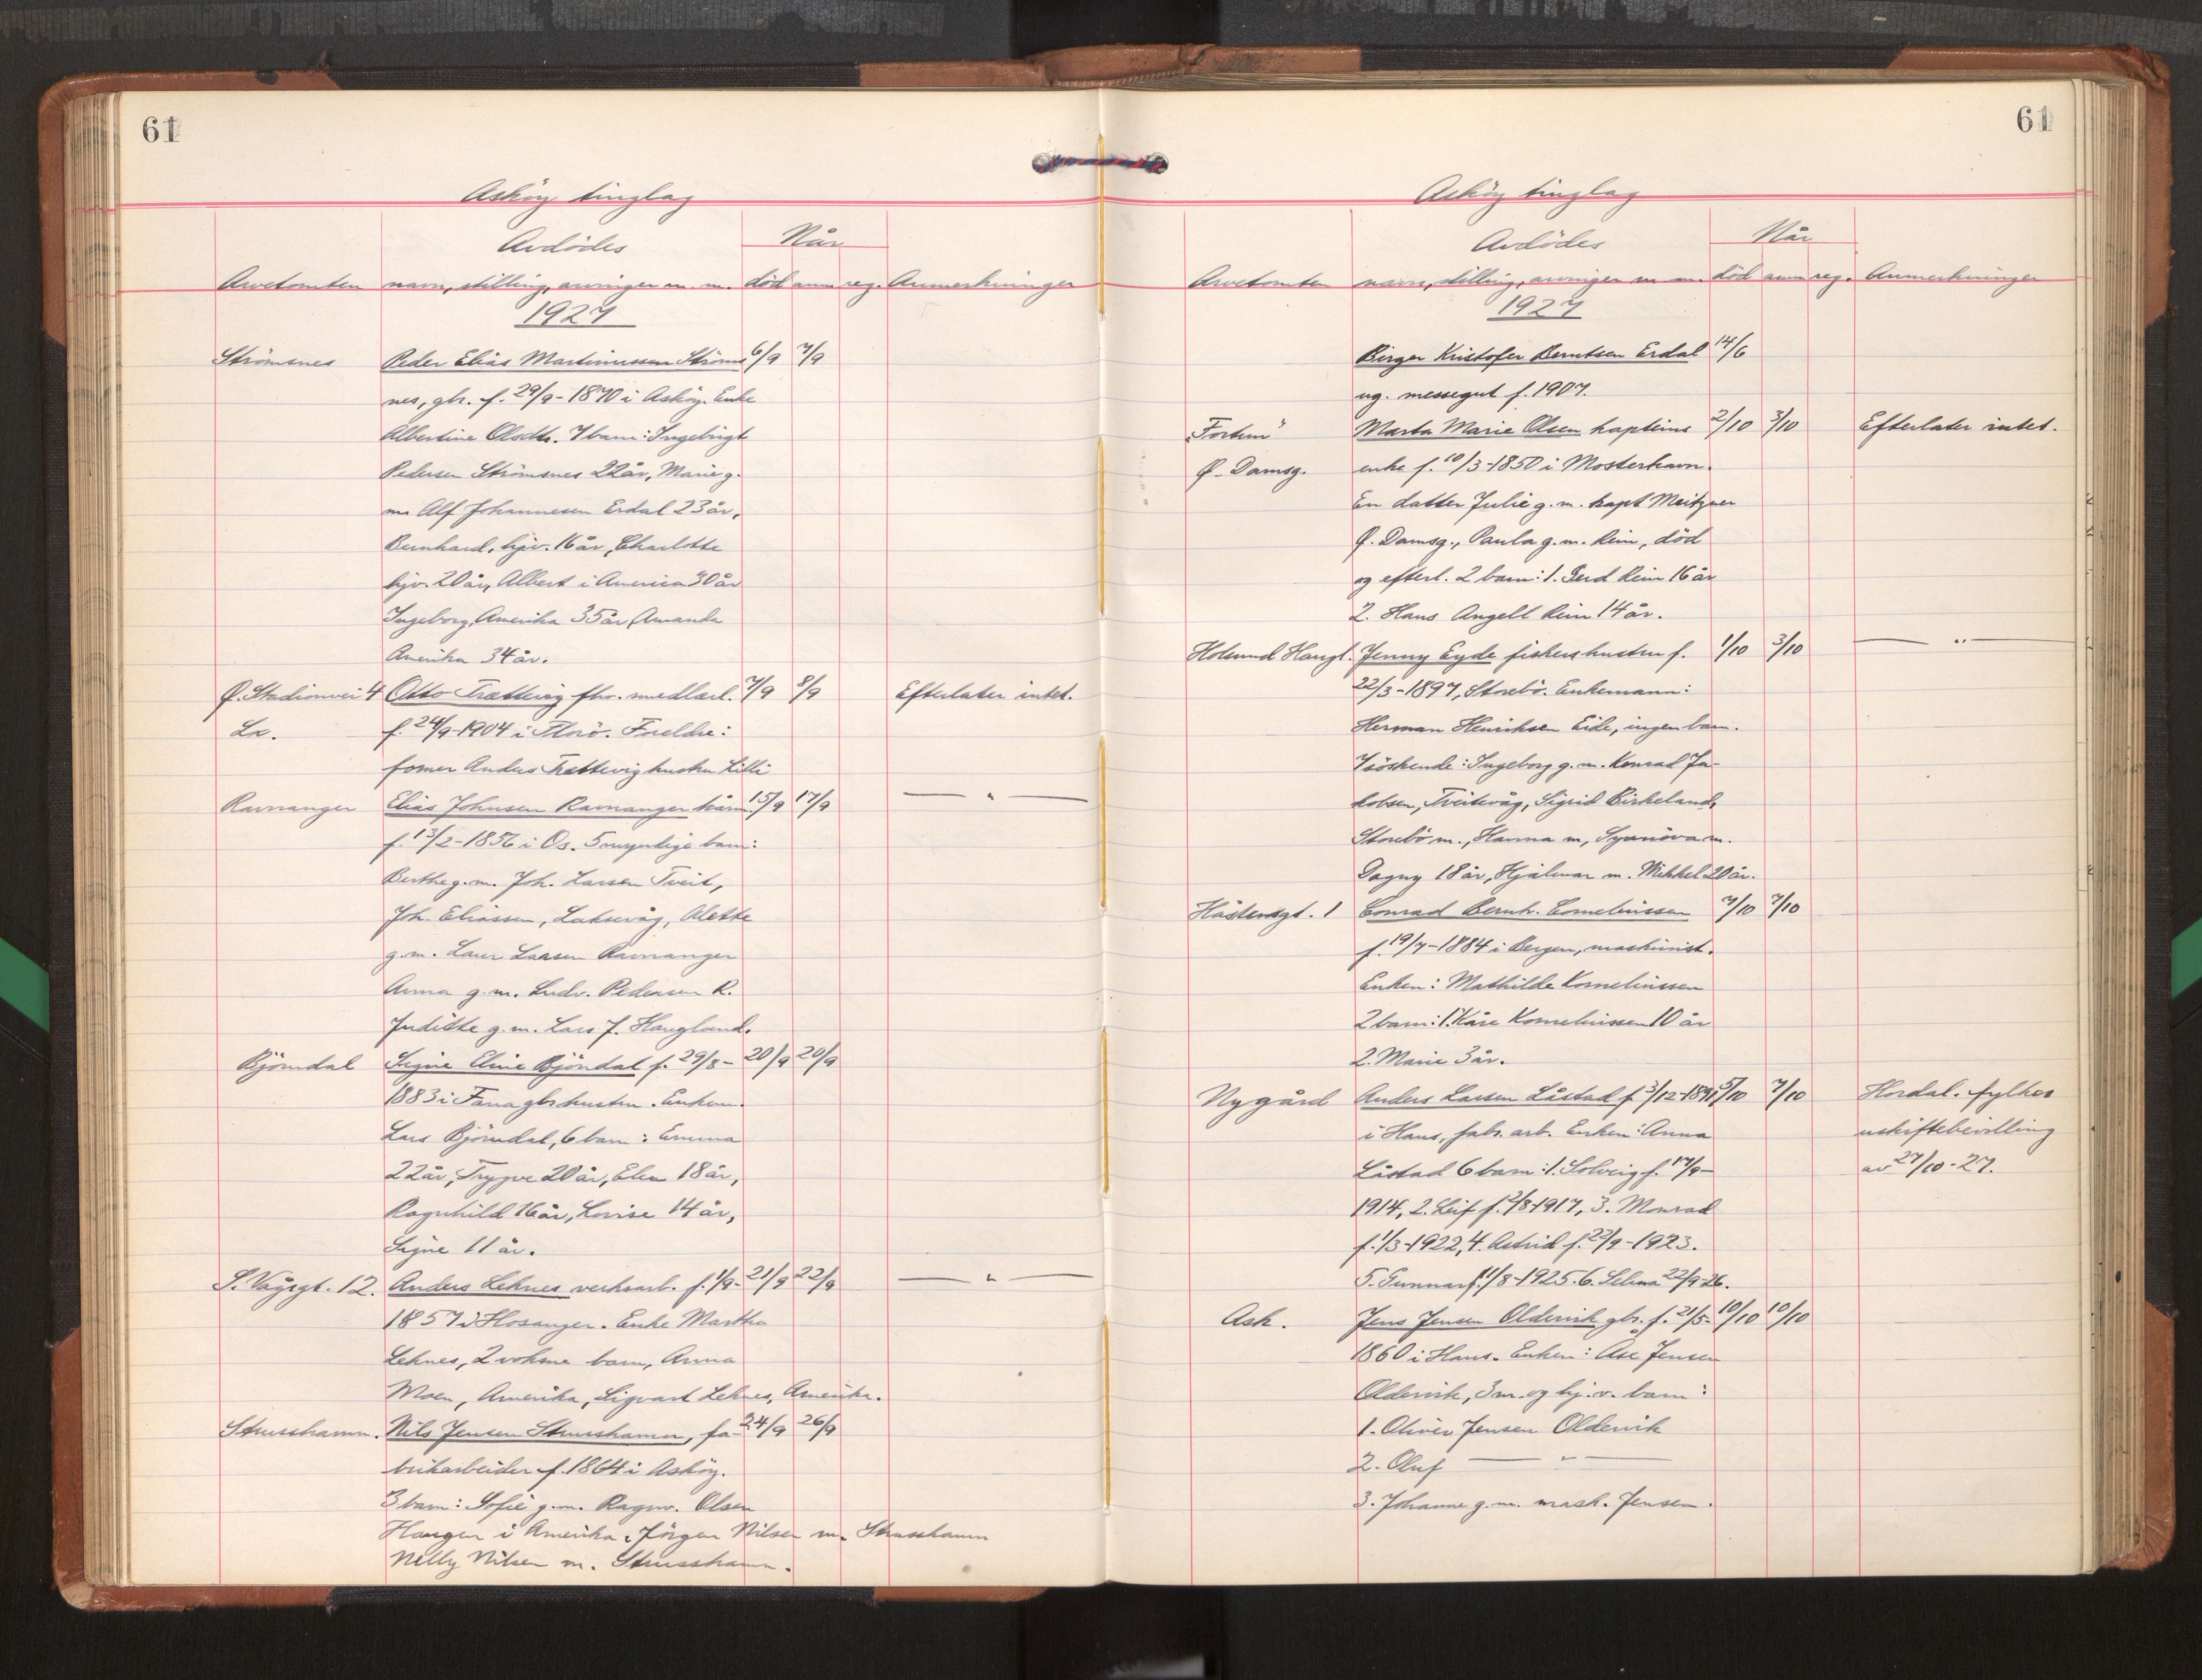 61
Asköy tinglag
Avdödes
Når
Arvetomten navn, stilling, arvinger m. m. död anm reg. Anmerkninger
1927
Strömsnes Peder Elias Martinussen Ströms 6/9 7/9
nes, gbr. f. 29/9-1870 i Asköy. Enke
Albertine Olsdtr. 7 barn: Ingebrigt
Pedersen Strömsnes 22 år, Marie g.
m. Alf Johannesen Erdal 23 år,
Bernhard, hjv. 16 år, Charlotte
hjv. 20 år, Albert i America 30 år
Ingeborg, Amerika 35 år, Amanda
Amerika 34 år.
Ø. Stadionvei 4 Otto Trættevig fhv. smedlærl. 7/9 8/9 Efterlater intet.
La. f. 24/9-1904 i Florö. Foreldre:
former Anders Trættevig hustru Lilli
Ravnanger Elias Johnsen Ravnanger kårm. 15/9 17/9 — " —
f. 13/2-1856 i Os. 5 myndige barn:
Berthe g. m. Joh. Larsen Tveit,
Joh. Eliassen, Laksevåg, Alette
g. m. Laur Larsen Ravnanger
Anna g. m. Ludv. Pedersen R.
Judithe g. m. Lars J. Haugland.
Björndal Signe Eline Björndal f. 29/8- 20/9 20/9
1883 i Fana gbrhustru. Enkem.
Lars Björndal, 6 barn: Emma
22 år, Trygve 20 år, Elen 18 år,
Ragnhild 16 år, Lovise 14 år,
Signe 11 år.
S. Vågsgt. 12. Anders Leknes verksarb. f. 1/9- 21/9 22/9 — " —
1857 i Hosanger. Enke Martha
Leknes, 2 voksne barn, Anna
Moen, Amerika, Sigvart Leknes, Amerika.
Strusshamn. Nils Jensen Strusshamn, fa- 24/9 26/9
brikarbeider f. 1864 i Asköy.
3 barn: Sofie g. m. Ragnv. Olsen
Haugen i Amerika, Jörgen Nilsen m. Strusshamn
Nelly Nilsen m. Strusshamn.
61
Asköy tinglag
Avdödes
Når
Arvetomten navn, stilling, arvinger m. m. död anm reg. Anmerkninger
1927
Birger Kristofer Berntsen Erdal 14/6
ug. messegut f. 1907.
"Fortun" Marta Marie Olsen kapteins 2/10 3/10 Efterlater intet.
Ø. Damsg. enke f. 10/3-1850 i Mosterhavn.
En datter Julie g. m. kapt Meitzner
Ø. Damsg., Paula g. m. Rein, död
og efterl. 2 barn: 1. Gerd Rein 16 år
2. Hans Angell Rein 14 år.
Holmund Haugl. Jenny Eyde fiskershustru f. 1/10 3/10 — " —
22/3-1897, Storebö. Enkemann:
Herman Henriksen Eide, ingen barn.
7 söskende: Ingeborg g. m. Konrad Ja-
kobsen, Tveitevåg, Sigrid Birkeland,
Storebö m., Hanna m, Synnöva m.
Dagny 18 år, Hjalmar m. Mikkel 20 år.
Håstensgt. 1 Conrad Bernh. Corneliussen 7/10 7/10
f. 19/7-1884 i Bergen, maskinist.
Enken: Mathilde Korneliussen
2 barn: 1. Kåre Korneliussen 10 år
2. Marie 3 år.
Nygård Anders Larsen Låstad f. 3/12-1891 5/10 7/10 Hordal. fylkes
i Haus, fabr. arb. Enken: Anna uskiftebevilling
Låstad 6 barn: 1. Solveig f. 17/9- av 27/10-27.
1914, 2. Leif f. 2/8-1917, 3. Monrad
f. 1/3-1922, 4. Astrid f. 23/9-1923.
5. Gunnar f. 11/8-1925. 6. Selma 22/9-26.
Ask. Jens Jensen Oldervik gbr. f. 21/5- 10/10 10/10
1860 i Haus. Enken: Åse Jensen
Oldervik, 3 m. og hj. v. barn:
1. Oliver Jensen Oldervik
2. Oluf — " —
3. Johanne g. m. mask. Jensen.